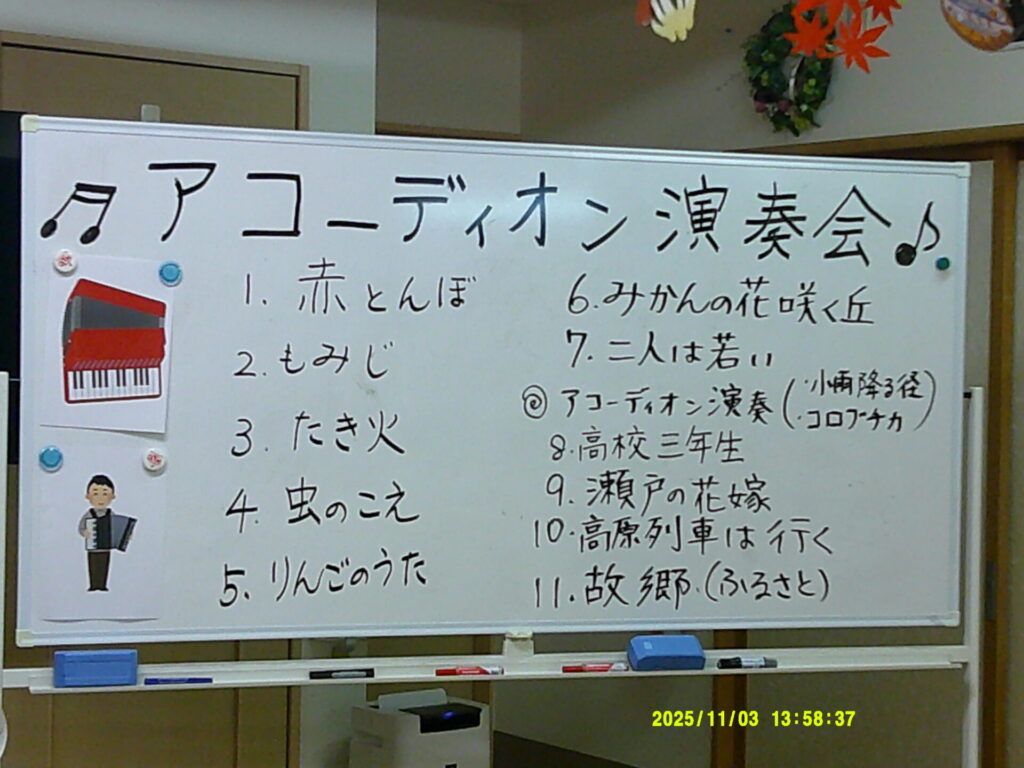 ♫アコーディオン演奏会♪
1. 赤とんぼ
2. もみじ
3. たき火
4. 虫のこえ
5. りんごのうた
6. みかんの花咲く丘
7. 二人は若い
◎ アコーディオン演奏(・小雨降る径 ・コロブチカ)
8. 高校三年生
9. 瀬戸の花嫁
10. 高原列車は行く
11. 故郷.(ふるさと)
2025/11/03 13:58:37